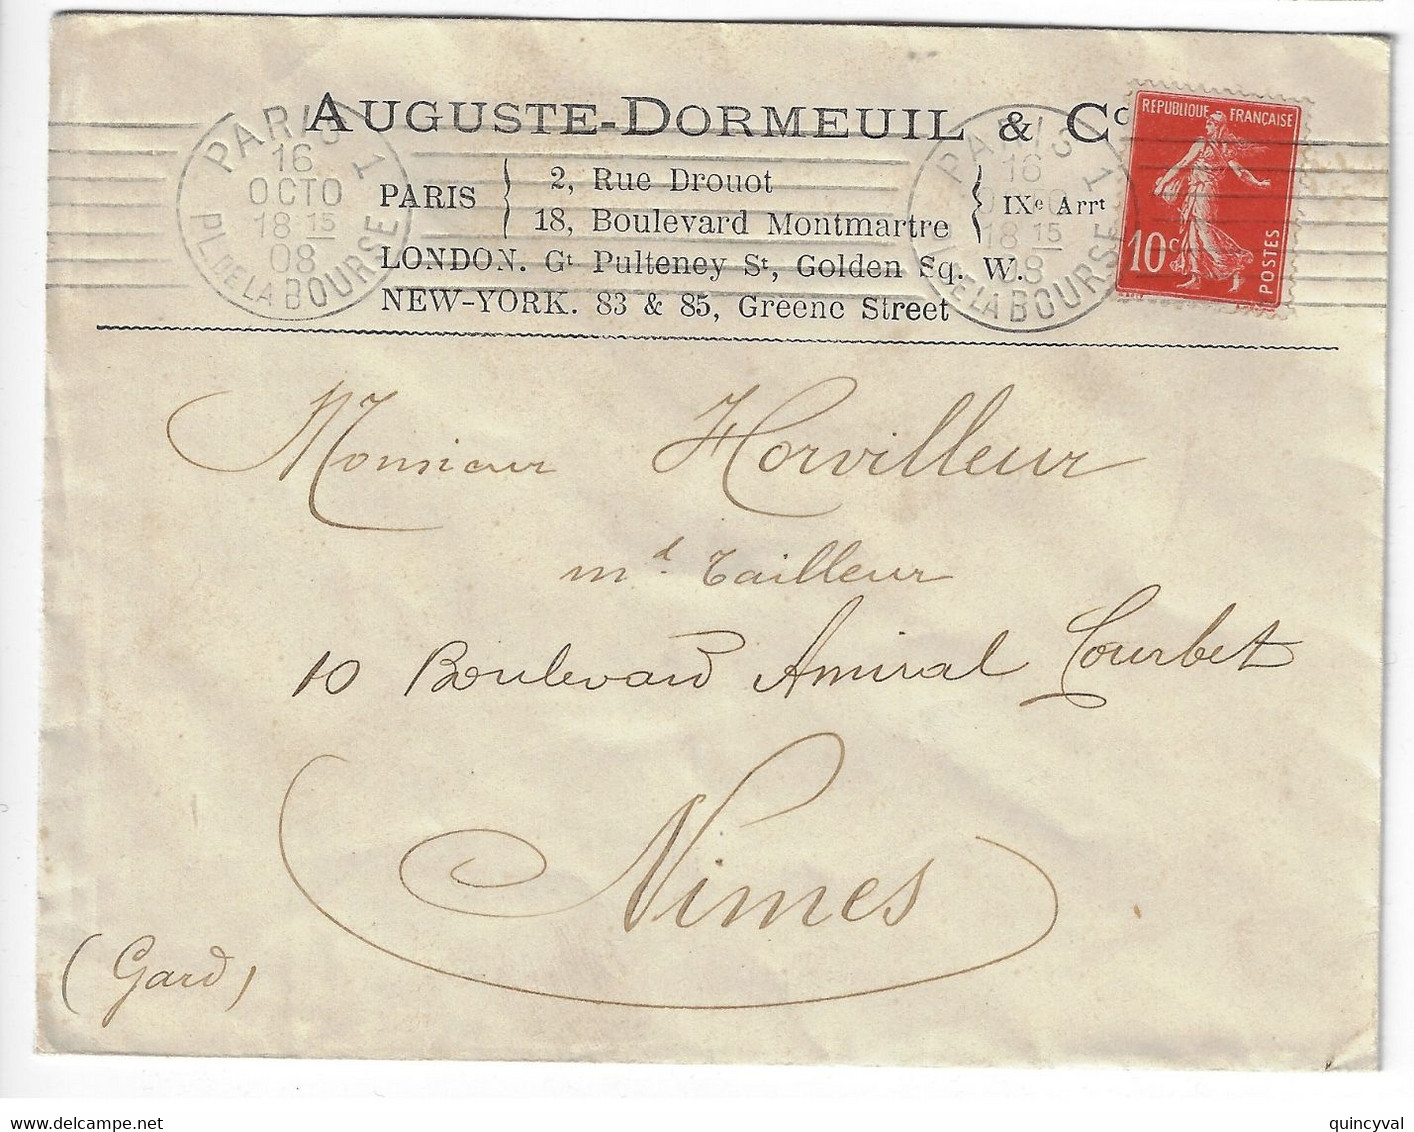 AUGUSTE-DORMEUIL & Co
PARIS
2, Rue Drouot
18, Boulevard Montmartre
IXe Arrt
LONDON. Gt Pulteney St, Golden Sq. W.
NEW-YORK. 83 & 85, Greene Street
PARIS 1
16
OCTO
18 15
08
PL. DE LA BOURSE
PARIS 1
16
18 15
08
DE LA BOURSE
REPUBLIQUE FRANÇAISE
10 c
POSTES
Monsieur Horvilleur
md. Tailleur
10 Boulevard Amiral Courbet
Nimes
(Gard)
quincyval